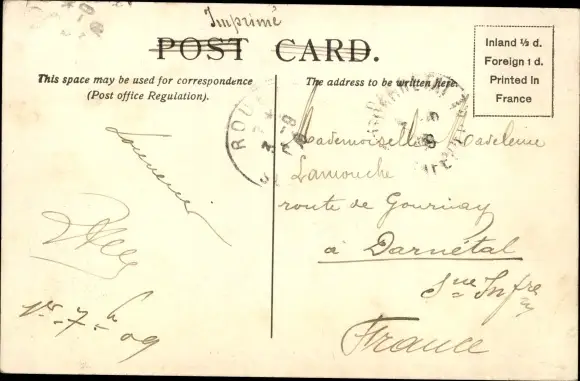 Imprimé
POST CARD.
Inland ½ d.
Foreign 1 d.
Printed in
France
This space may be used for correspondence
(Post office Regulation).
The address to be written here.
ROU
Souvenir
1er-7-h 09
Mademoiselle Madeleine
Lamouche
route de Gournay
à Darnétal
Sne Infre
France